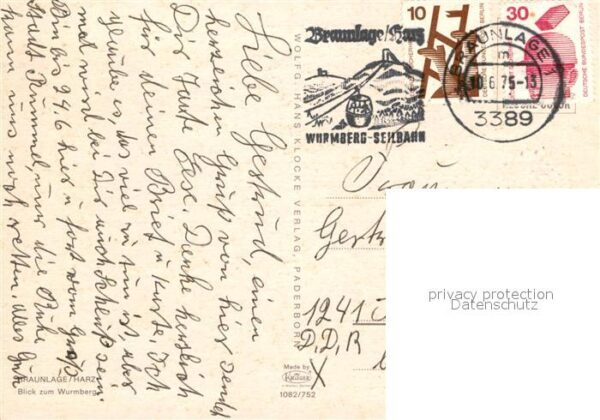 Liebe Gertrud, einen
herzlichen Gruß von hier sendet
Dir Tante Ese. Danke herzlich
für deinen Brief u. Karte. Ich
glaube es, das viel zu tun ist, aber
mal wird bei Dir auch
Bis 24/6 hier u. fort vom Groß
stadt Rummel, nur die Ruhe
kann uns noch retten. Alles Gute
BRAUNLAGE/HARZ
Blick zum Wurmberg
WOLFG. HANS KLOCKE VERLAG, PADERBORN
Made by
Krüger
1082/752
Braunlage/Harz
WURMBERG-SEILBAHN
10
30
DEUTSCHE BUNDESPOST BERLIN
BRAUNLAGE 1
.6.75-13
3389
Frau
Gert
1241
D.D.R
X
privacy protection
Datenschutz